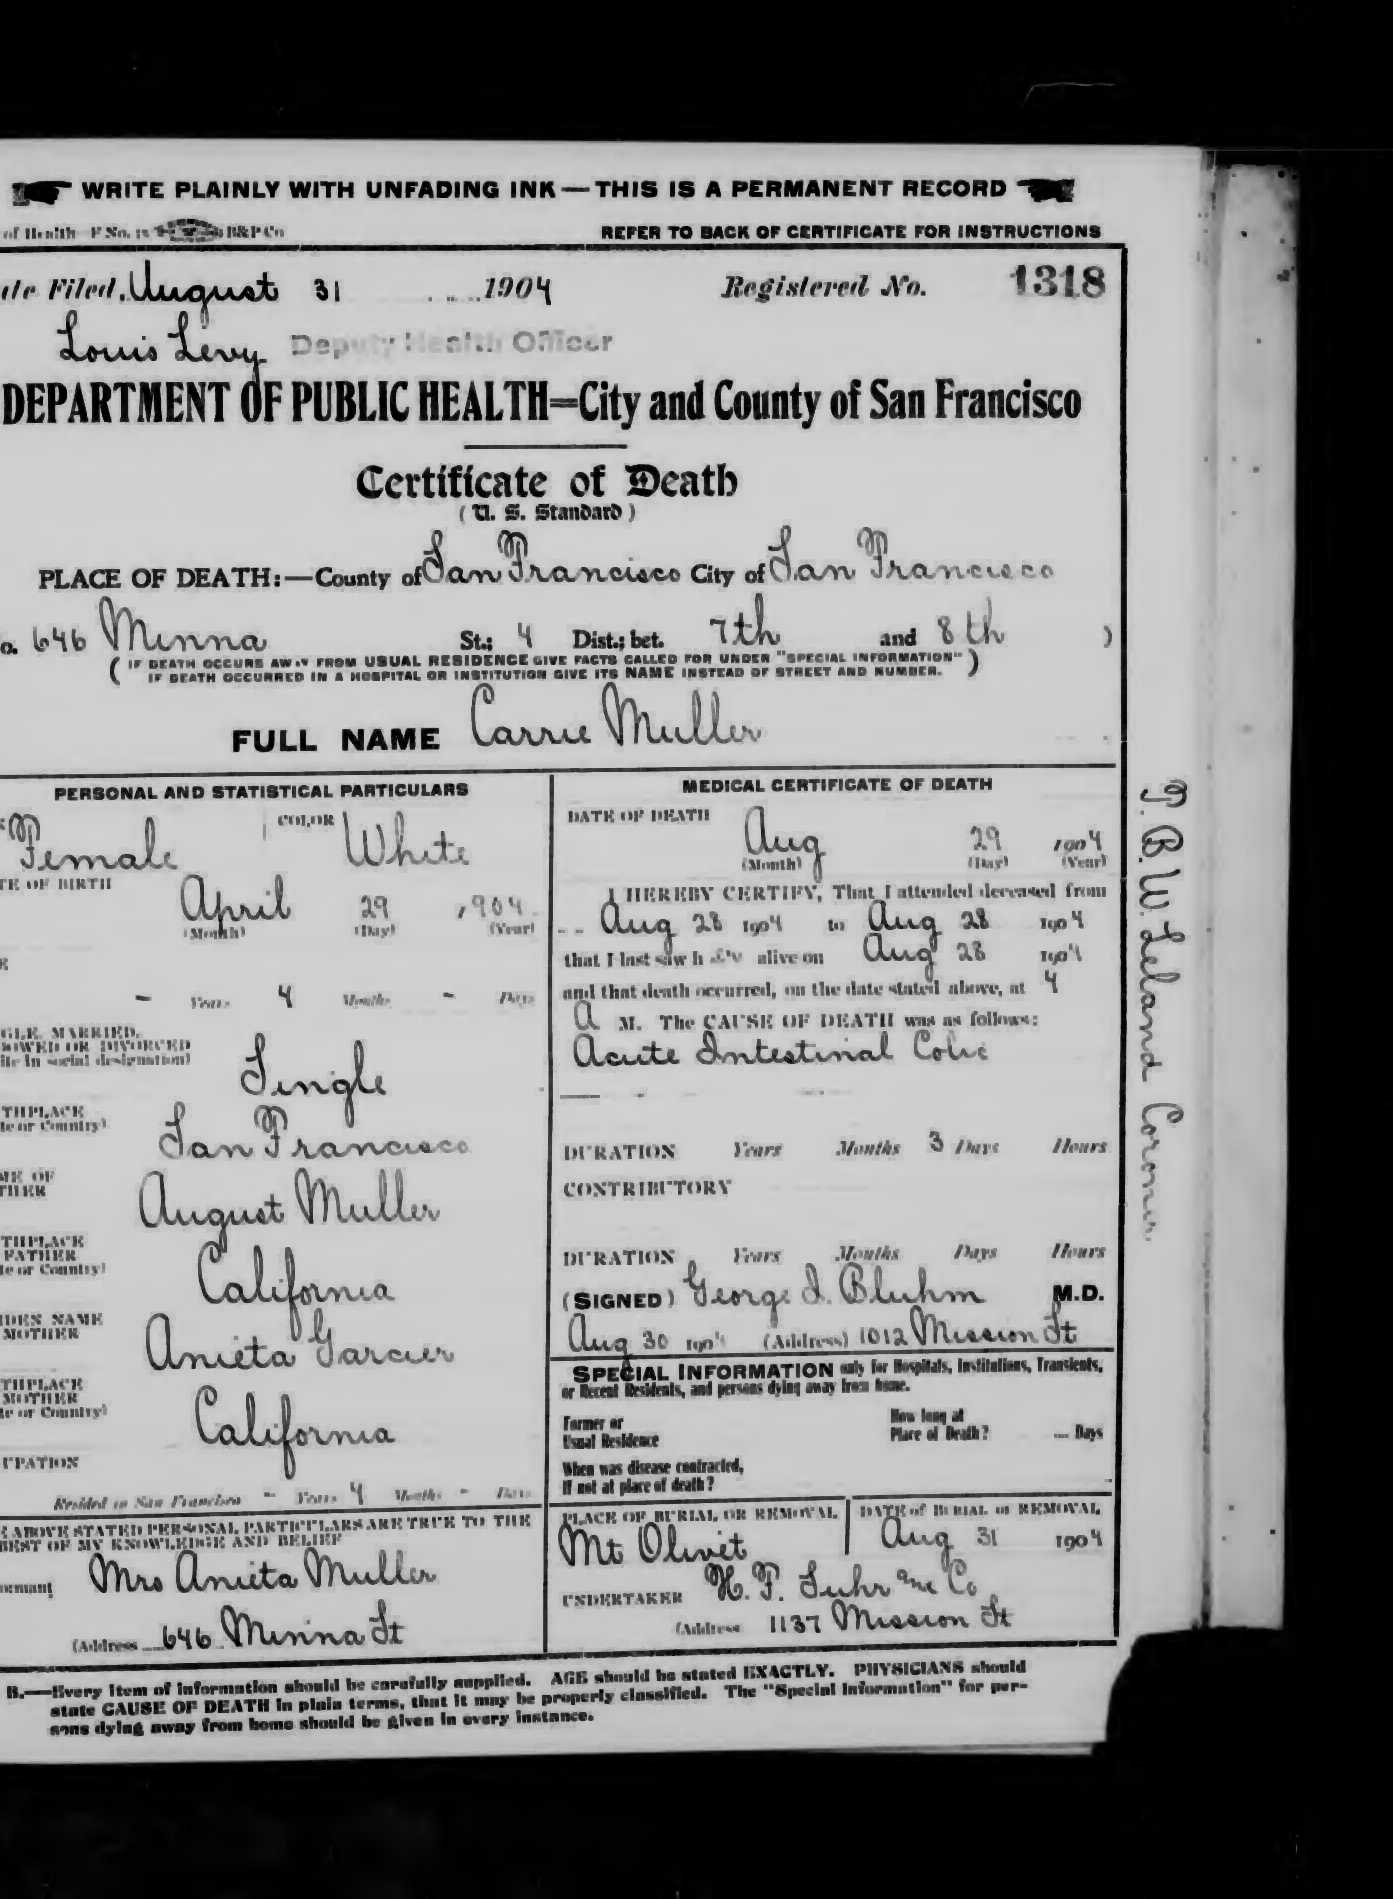 WRITE PLAINLY WITH UNFADING INK — THIS IS A PERMANENT RECORD
of Health—F No. 15 B&P Co
REFER TO BACK OF CERTIFICATE FOR INSTRUCTIONS
te Filed, August 31 1904 Registered No. 1318
Louis Levy Deputy Health Officer
DEPARTMENT OF PUBLIC HEALTH=City and County of San Francisco
Certificate of Death
( U. S. Standard )
PLACE OF DEATH:—County of San Francisco City of San Francisco
o. 646 Minna St.; 4 Dist.; bet. 7th and 8th )
( IF DEATH OCCURS AWAY FROM USUAL RESIDENCE GIVE FACTS CALLED FOR UNDER "SPECIAL INFORMATION" )
IF DEATH OCCURRED IN A HOSPITAL OR INSTITUTION GIVE ITS NAME INSTEAD OF STREET AND NUMBER.
FULL NAME Carrie Muller
PERSONAL AND STATISTICAL PARTICULARS
Female COLOR White
TE OF BIRTH
April 29 1904
(Month) (Day) (Year)
E
- Years 4 Months - Days
GLE, MARRIED,
OWED OR DIVORCED
ite in social designation)
Single
THPLACE
te or Country)
San Francisco
ME OF
THER
August Muller
THPLACE
FATHER
te or Country)
California
IDEN NAME
MOTHER
Anieta Garcier
THPLACE
MOTHER
te or Country)
California
UPATION
Resided in San Francisco - Years 4 Months - Days
E ABOVE STATED PERSONAL PARTICULARS ARE TRUE TO THE
BEST OF MY KNOWLEDGE AND BELIEF
ormant Mrs Anieta Muller
(Address 646 Minna St
MEDICAL CERTIFICATE OF DEATH
DATE OF DEATH
Aug 29 1904
(Month) (Day) (Year)
I HEREBY CERTIFY, That I attended deceased from
Aug 28 1904 to Aug 28 1904
that I last saw h er alive on Aug 28 1904
and that death occurred, on the date stated above, at 4
A M. The CAUSE OF DEATH was as follows:
Acute Intestinal Colic
DURATION Years Months 3 Days Hours
CONTRIBUTORY
DURATION Years Months Days Hours
(SIGNED) George I. Bluhm M.D.
Aug 30 1904 (Address) 1012 Mission St
SPECIAL INFORMATION only for Hospitals, Institutions, Transients,
or Recent Residents, and persons dying away from home.
Former or
Usual Residence
How long at
Place of Death? Days
When was disease contracted,
If not at place of death?
PLACE OF BURIAL OR REMOVAL
Mt Olivet
DATE of BURIAL or REMOVAL
Aug 31 1904
UNDERTAKER H. F. Suhr Inc Co
(Address 1137 Mission St
B.—Every item of information should be carefully supplied. AGE should be stated EXACTLY. PHYSICIANS should
state CAUSE OF DEATH in plain terms, that it may be properly classified. The "Special Information" for per-
sons dying away from home should be given in every instance.
T. B. W. Leland Coroner.